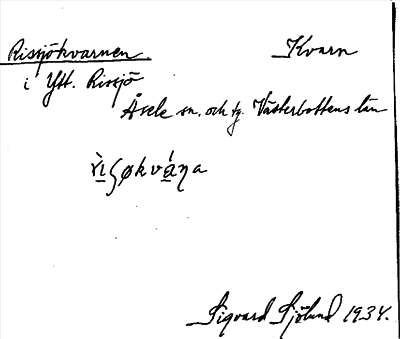 Rissjökvarnen Kvarn
i Ytt. Rissjö
Åsele sn. och tg. Västerbottens län
Sigvard Sjölund 1934.